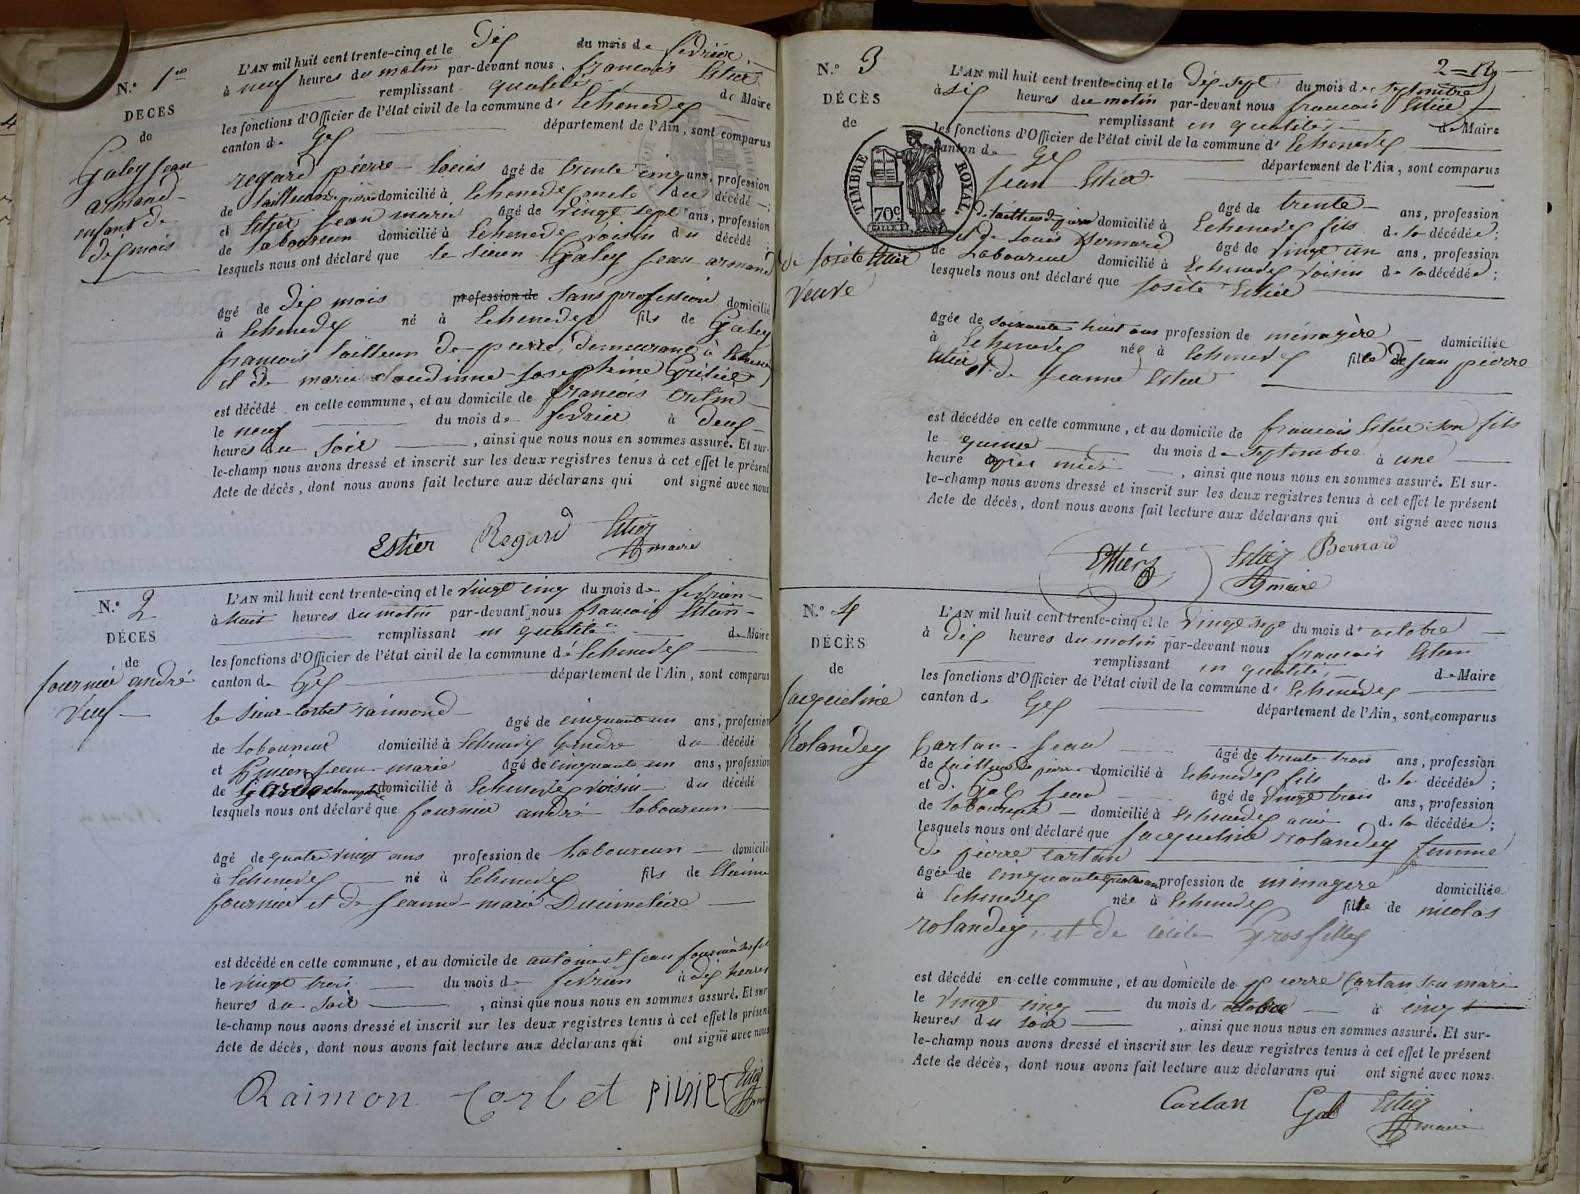 N.o 1er
DÉCES
de
Galey Jean
armand
enfant de
dix mois
L'AN mil huit cent trente-cinq et le Dix du mois de fevrier
à neuf heures du matin par-devant nous françois Estier
remplissant qualité de Maire
les fonctions d'Officier de l'état civil de la commune d'Echenevex
canton de Gex département de l'Ain, sont comparus
regard pierre-louis âgé de trente cinq ans, profession
de tailleur de pierre domicilié à Echenevex oncle du décédé ;
et Estier Jean marie âgé de vingt sept ans, profession
de laboureur domicilié à Echenevex voisin du décédé ;
lesquels nous ont déclaré que le sieur Galey Jean armand
âgé de dix mois profession de sans profession domicilié
à Echenevex né à Echenevex fils de Galey
françois tailleur de pierre, demeurant à Echenevex
et de marie claudinne Josephine
est décédé en cette commune, et au domicile de françois
le neuf du mois de fevrier à deux
heures du soir , ainsi que nous nous en sommes assuré. Et sur-
le-champ nous avons dressé et inscrit sur les deux registres tenus à cet effet le présent
Acte de décès, dont nous avons fait lecture aux déclarans qui ont signé avec nous
Estier Regard Estier
maire
N.o 2
DÉCES
de
fournier andré
Veuf
L'AN mil huit cent trente-cinq et le vingt cinq du mois de fevrier
à huit heures du matin par-devant nous françois Estier
remplissant en qualité de Maire
les fonctions d'Officier de l'état civil de la commune d'Echenevex
canton de Gex département de l'Ain, sont comparus
le sieur Corbet raimond âgé de cinquante un ans, profession
de laboureur domicilié à Echenevex Gendre du décédé
et Jean marie âgé de cinquante un ans, profession
de Garde champêtre domicilié à Echenevex voisin du décédé
lesquels nous ont déclaré que fournier andré laboureur
âgé de quatre vingt ans profession de laboureur domicilié
à Echenevex né à Echenevex fils de
fournier et de Jeanne marie Ducimetière
est décédé en cette commune, et au domicile de antoine et Jean fournier ses fils
le vingt trois du mois de fevrier à dix heures
heures du soir , ainsi que nous nous en sommes assuré. Et sur
le-champ nous avons dressé et inscrit sur les deux registres tenus à cet effet le présent
Acte de décès, dont nous avons fait lecture aux déclarans qui ont signé avec nous
Raimon Corbet Estier
maire
2=
N.o 3
DÉCÈS
de
TIMBRE ROYAL
70c
de Josète Estier
veuve
L'AN mil huit cent trente-cinq et le dix-sept du mois de septembre
à six heures du matin par-devant nous françois Estier
remplissant en qualité de Maire
les fonctions d'Officier de l'état civil de la commune d'Echenevex
canton de Gex département de l'Ain, sont comparus
Jean Estier âgé de trente ans, profession
de tailleur de pierre domicilié à Echenevex fils de la décédée ;
et de Louis Bernard âgé de vingt un ans, profession
de Laboureur domicilié à Echenevex voisin de la décédée ;
lesquels nous ont déclaré que Josète Estier
âgée de soixante huit ans profession de ménagère domiciliée
à Echenevex née à Echenevex fille de Jean pierre
Estier et de Jeanne Estier
est décédée en cette commune, et au domicile de françois Estier son fils
le quinze du mois de septembre à une
heure après midi , ainsi que nous nous en sommes assuré. Et sur-
le-champ nous avons dressé et inscrit sur les deux registres tenus à cet effet le présent
Acte de décès, dont nous avons fait lecture aux déclarans qui ont signé avec nous
Estier Estier Bernard
maire
N.o 4
DÉCÈS
de
Jacqueline
Rolandey
L'AN mil huit cent trente-cinq et le vingt sept du mois d'octobre
à dix heures du matin par-devant nous françois Estier
remplissant en qualité de Maire
les fonctions d'Officier de l'état civil de la commune d'Echenevex
canton de Gex département de l'Ain, sont comparus
Cartan Jean âgé de trente trois ans, profession
de tailleur de pierre domicilié à Echenevex fils de la décédée ;
et de Gal Jean âgé de vingt trois ans, profession
de laboureur domicilié à Echenevex ami de la décédée ;
lesquels nous ont déclaré que Jacqueline rolandey femme
de pierre Cartan
âgée de cinquante quatre ans profession de ménagère domiciliée
à Echenevex née à Echenevex fille de nicolas
rolandey, et de cécile Grosfilley
est décédé en cette commune, et au domicile de pierre Cartan son mari
le vingt cinq du mois d'octobre à cinq
heures du soir , ainsi que nous nous en sommes assuré. Et sur-
le-champ nous avons dressé et inscrit sur les deux registres tenus à cet effet le présent
Acte de décès, dont nous avons fait lecture aux déclarans qui ont signé avec nous.
Cartan Gal Estier
maire